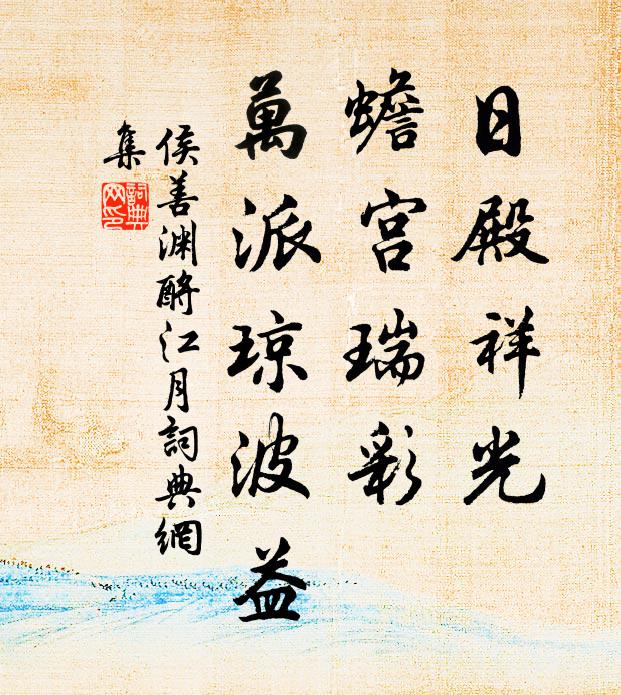 日殿祥光
蟾宫瑞彩
萬派琼波益
侯善渊酹江月詞典網
集
詞典网印